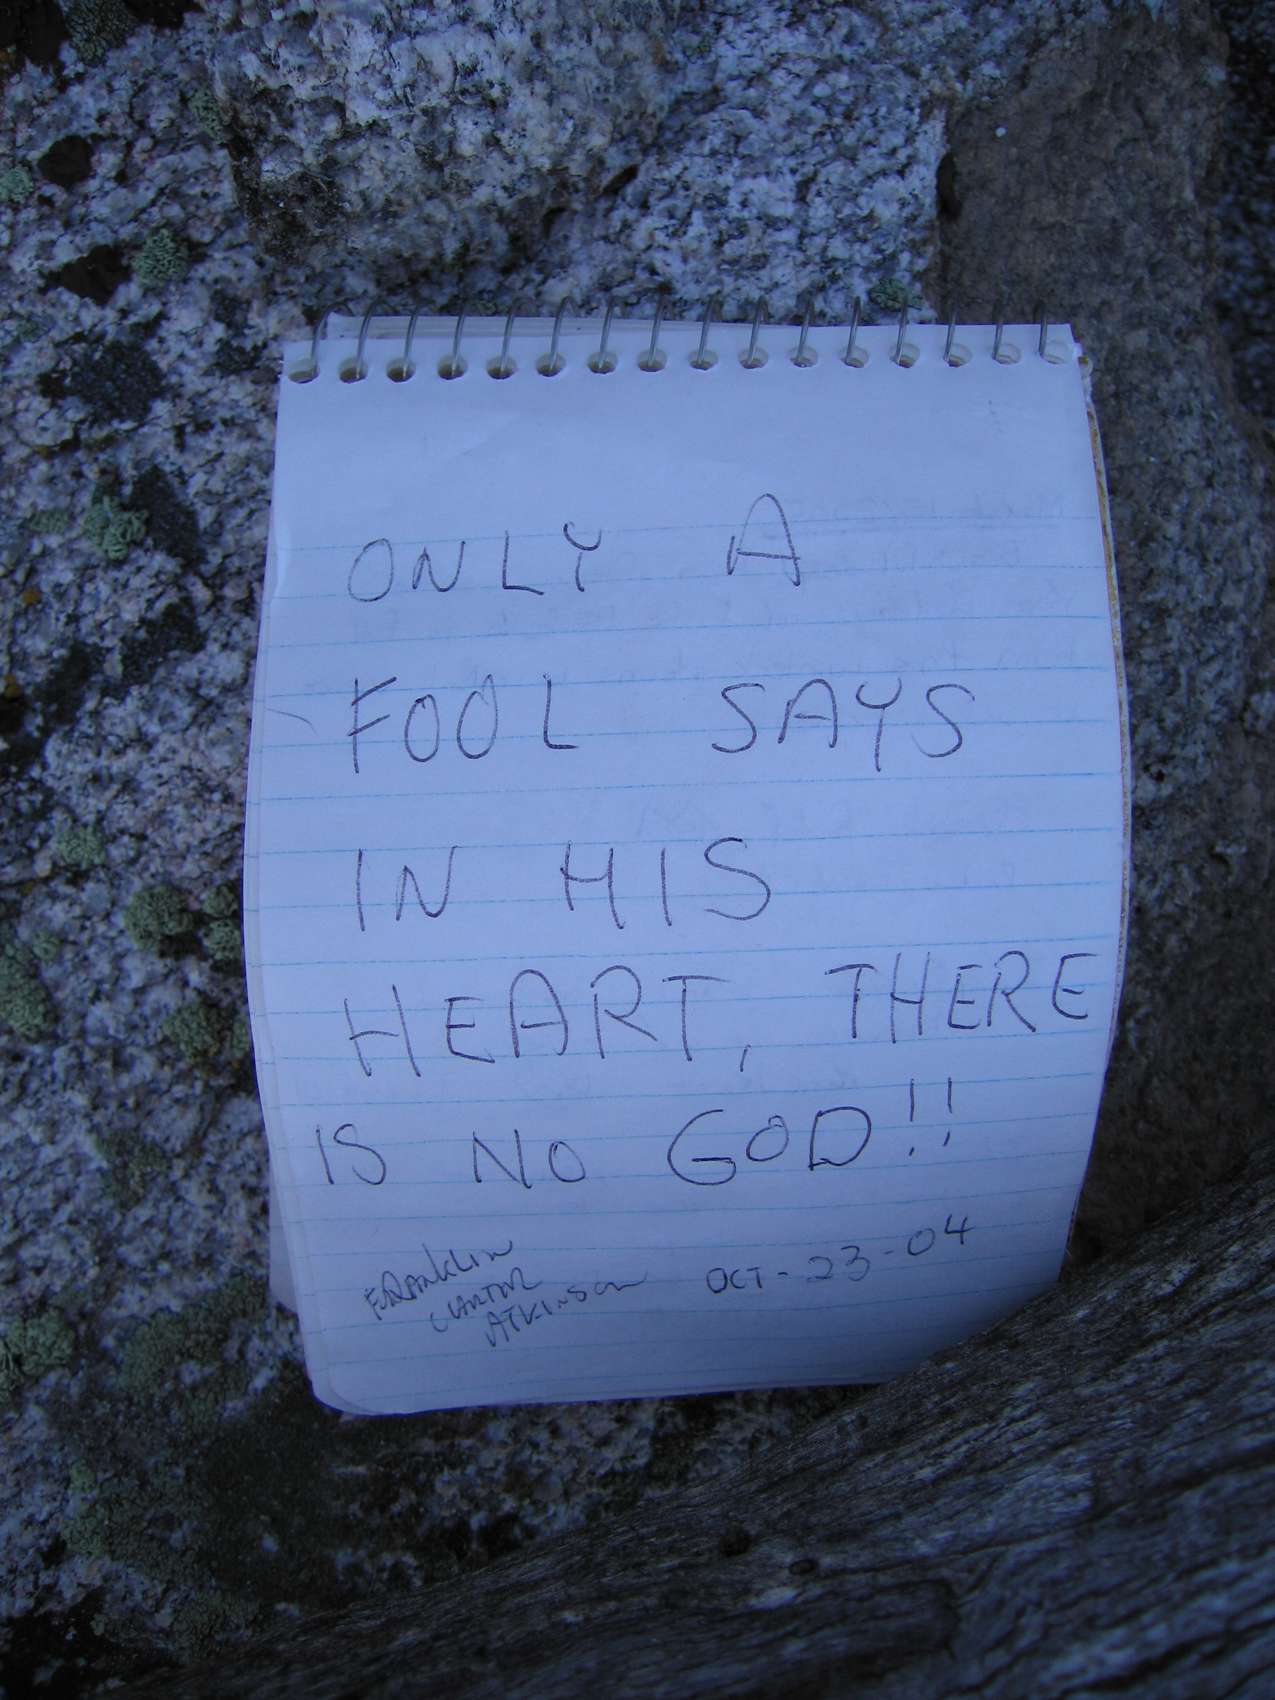 ONLY A
FOOL SAYS
IN HIS
HEART, THERE
IS NO GOD!!
FRANKLIN
ATKINSON
OCT-23-04